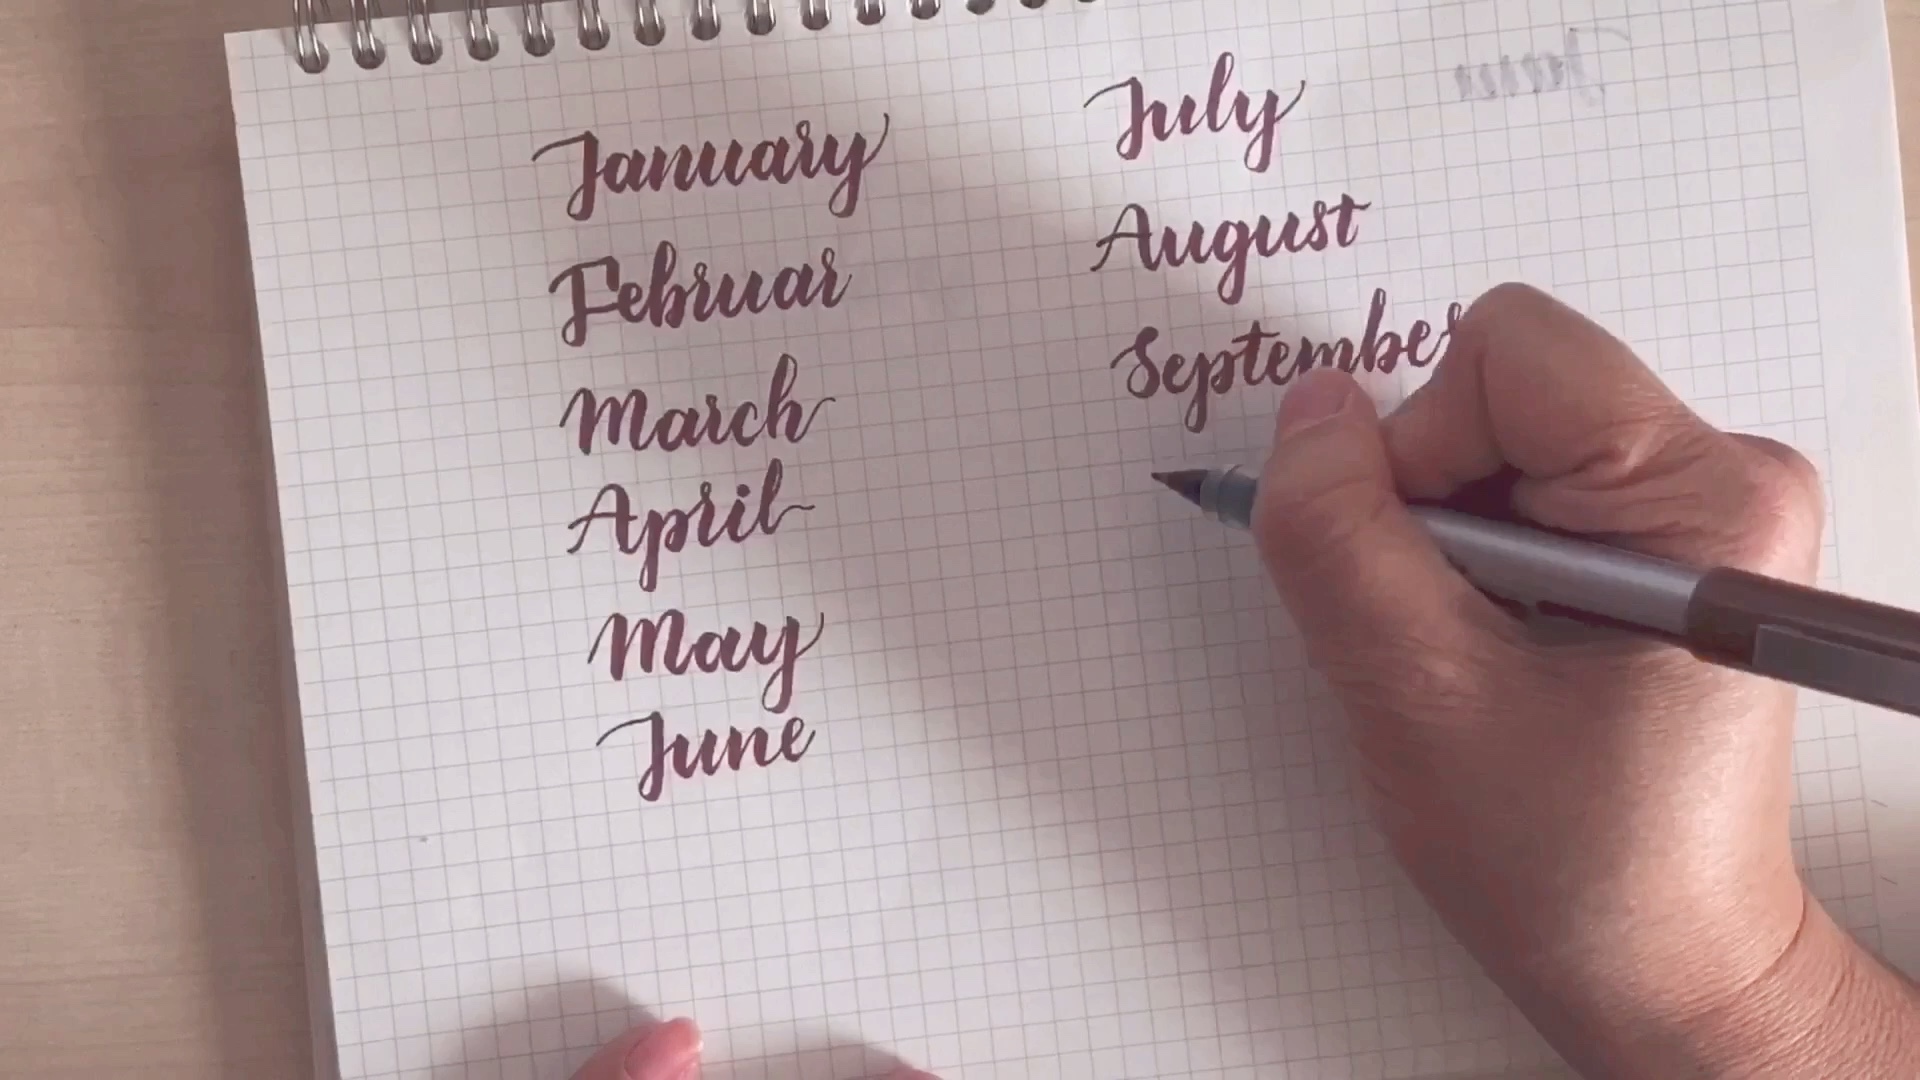 January
Februar
March
April
May
June
July
August
September